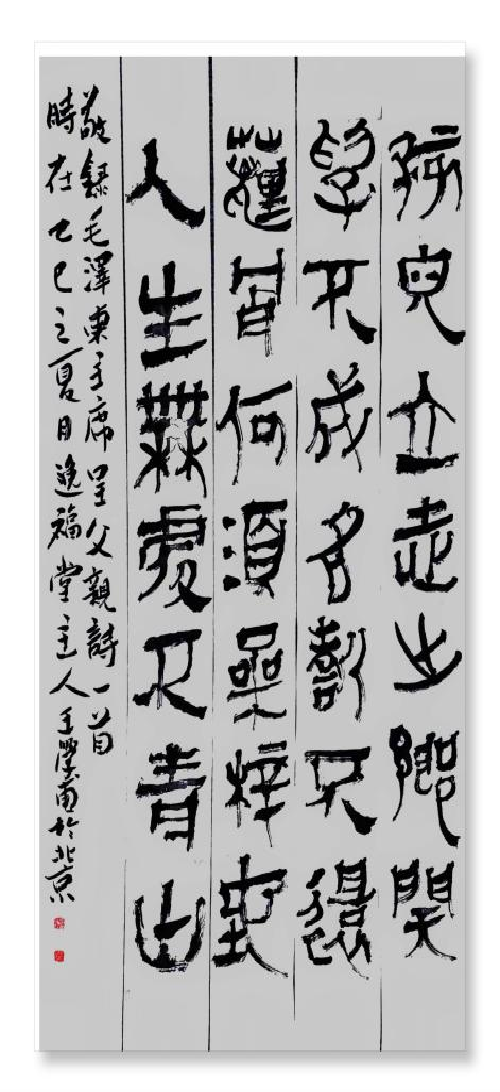 孩兒立志出鄉關
學不成名誓不還
薶骨何須桑梓地
人生無處不青山
敬錄毛澤東主席呈父親詩一首
時在乙巳之夏月福堂主人王學南於北京